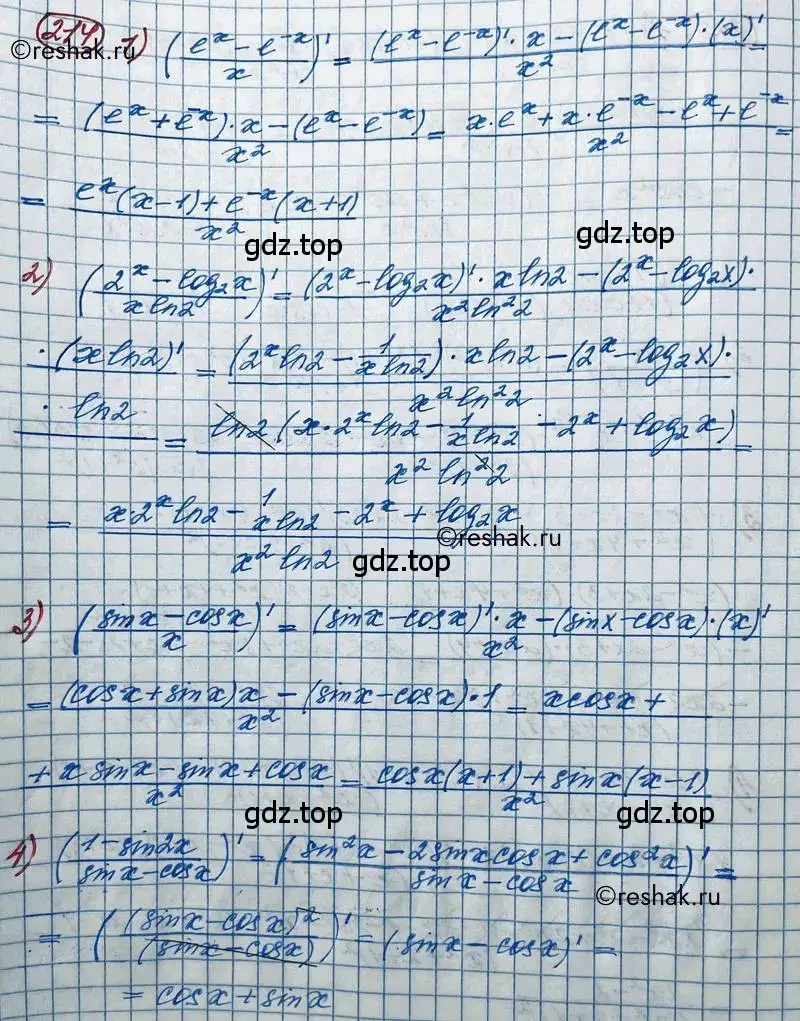 214. 1) ((e^x − e^−x)/x)' = ((e^x − e^−x)'·x − (e^x − e^−x)·(x)')/x² =
©reshak.ru
= ((e^x + e^−x)·x − (e^x − e^−x))/x² = (x·e^x + x·e^−x − e^x + e^−x)/x² =
= (e^x(x−1) + e^−x(x+1))/x²
gdz.top gdz.top
2) ((2^x − log₂x)/(x ln2))' = ((2^x − log₂x)'·x ln2 − (2^x − log₂x)·/(x² ln²2)
·(x ln2)' = ((2^x ln2 − 1/(x ln2))·x ln2 − (2^x − log₂x)·/(x² ln²2)
· ln2 = ln2 (x·2^x ln2 − 1/(x ln2) − 2^x + log₂x)/(x² ln²2) =
= (x·2^x ln2 − 1/(x ln2) − 2^x + log₂x)/(x² ln2)
©reshak.ru
gdz.top
3) ((sinx − cosx)/x)' = ((sinx − cosx)'·x − (sinx − cosx)·(x)')/x²
= ((cosx + sinx)x − (sinx − cosx)·1)/x² = xcosx +
+ x sinx − sinx + cosx/x² = (cosx(x+1) + sinx(x−1))/x²
gdz.top gdz.top
4) ((1 − sin2x)/(sinx − cosx))' = ((sin²x − 2sinxcosx + cos²x)/(sinx − cosx))' =
©reshak.ru
= ((sinx − cosx)²/(sinx − cosx))' = (sinx − cosx)' =
= cosx + sinx